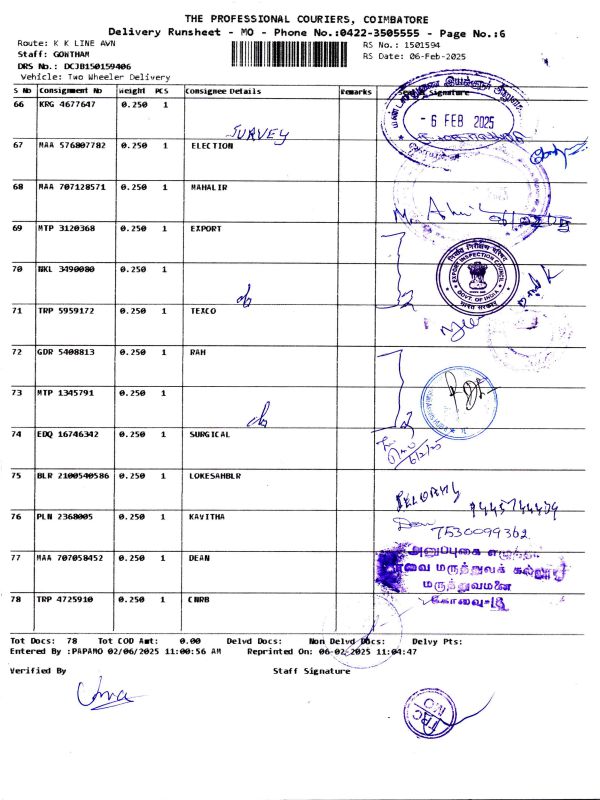 THE PROFESSIONAL COURIERS, COIMBATORE
Delivery Runsheet - MO - Phone No.:0422-3505555 - Page No.:6
Route: K K LINE AVN
RS No.: 1501594
Staff: GOWTHAM
RS Date: 06-Feb-2025
DRS No.: DCJB150159406
Vehicle: Two Wheeler Delivery
S No Consignment No Weight PCS Consignee Details Remarks Signature
66 KRG 4677647 0.250 1
SURVEY
- 6 FEB 2025
67 MAA 576807782 0.250 1 ELECTION
68 MAA 707128571 0.250 1 MAHALIR
69 MTP 3120368 0.250 1 EXPORT
EXPORT INSPECTION COUNCIL
GOVT. OF INDIA
70 NKL 3490080 0.250 1
do
2
71 TRP 5959172 0.250 1 TEXCO
72 GDR 5408813 0.250 1 RAH
73 MTP 1345791 0.250 1
do
2
74 EDQ 16746342 0.250 1 SURGICAL
6/2/25
75 BLR 2100540586 0.250 1 LOKESAHBLR
76 PLN 2368005 0.250 1 KAVITHA
7530099362
77 MAA 707058452 0.250 1 DEAN
கோவை மருத்துவக் கல்லூரி
மருத்துவமனை
கோவை-18
78 TRP 4725910 0.250 1 CNRB
Tot Docs: 78 Tot COD Amt: 0.00 Delvd Docs: Non Delvd Docs: Delvy Pts:
Entered By :PAPAMO 02/06/2025 11:00:56 AM Reprinted On: 06-02-2025 11:04:47
Verified By Staff Signature
Uma